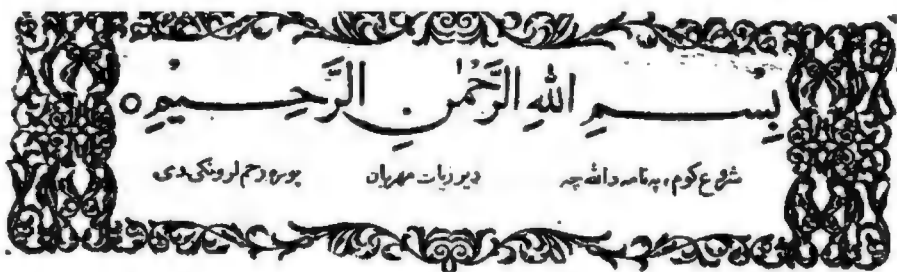 بِسْمِ اللهِ الرَّحْمٰنِ الرَّحِيْمِ ○
شروع کوم، په نامه د الله چه ډیر زیات مهربان پوره رحم لرونکی دی